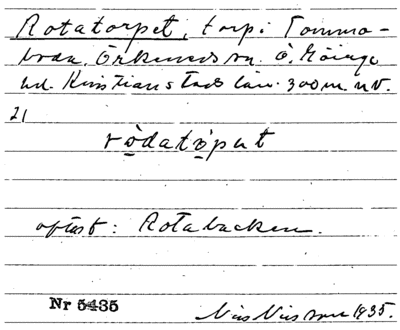 Rotatorpet, torp i Tomma-
boda. Örkeneds sn. Ö. Göinge
hd. Kristianstads län. 300 m. n.v.
21
rödatọ̈pat
oftast: Rotabacken.
Nr 5435
Nils Nilsson 1935.